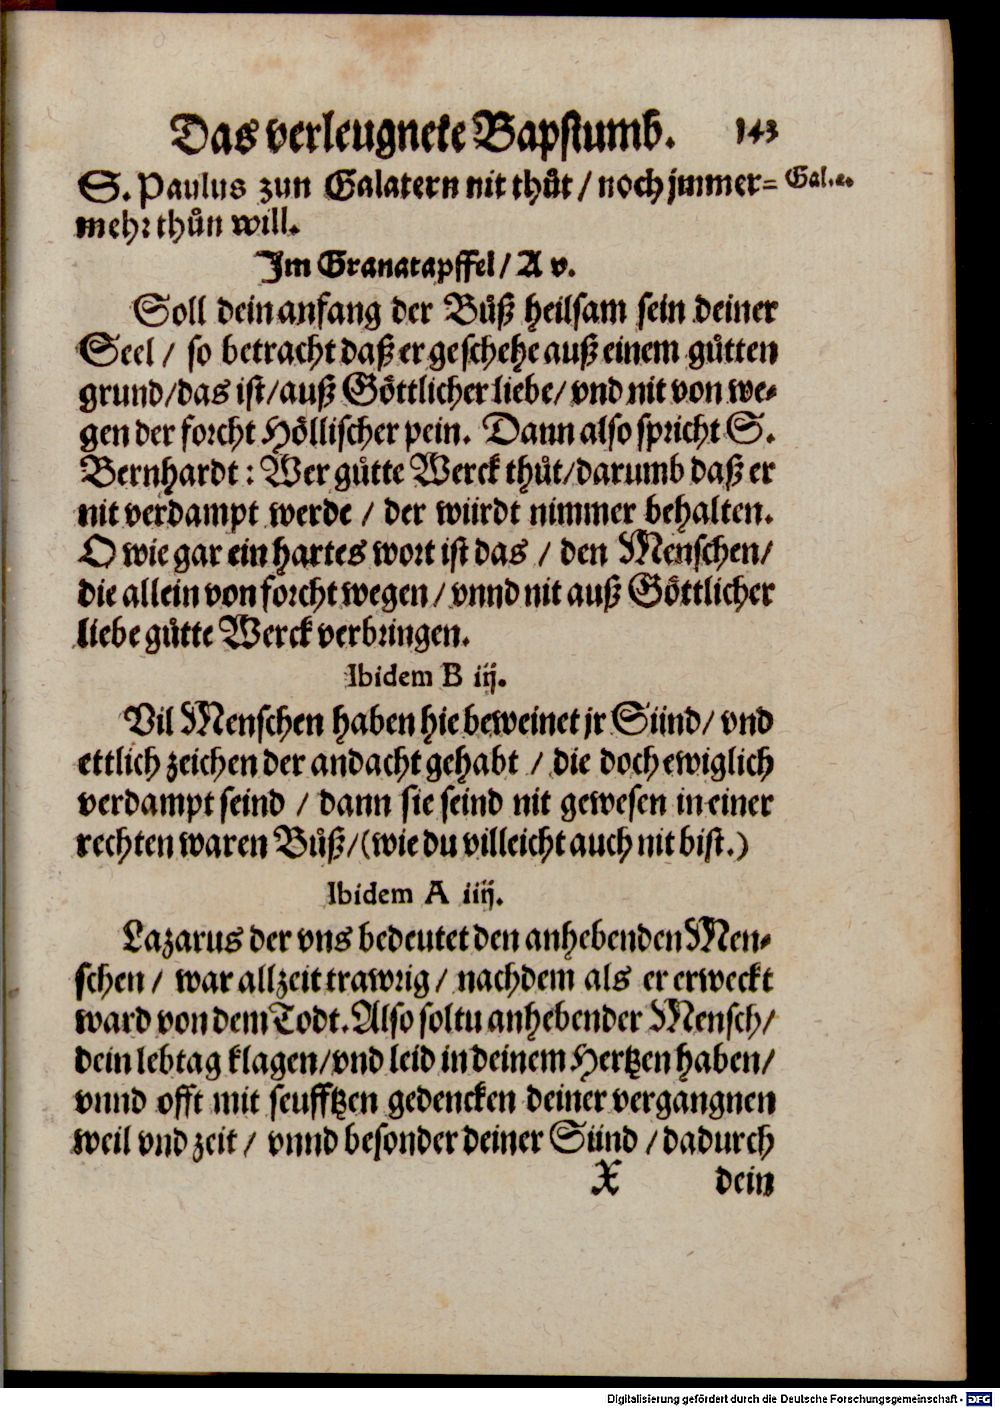 Das verleugnete Bapstumb. 143
S. Paulus zun Galatern nit thůt / noch jmmer= Gal.2.
mehr thůn will.
Im Granatapffel / A v.
Soll dein anfang der Bůß heilsam sein deiner
Seel / so betracht daß er geschehe auß einem gůtten
grund / das ist / auß Göttlicher liebe / vnd nit von we=
gen der forcht Höllischer pein. Dann also spricht S.
Bernhardt : Wer gůtte Werck thůt / darumb daß er
nit verdampt werde / der würdt nimmer behalten.
O wie gar ein hartes wort ist das / den Menschen /
die allein von forcht wegen / vnnd nit auß Göttlicher
liebe gůtte Werck verbringen.
Ibidem B iij.
Vil Menschen haben hie beweinet jr Sünd / vnd
ettlich zeichen der andacht gehabt / die doch ewiglich
verdampt seind / dann sie seind nit gewesen in einer
rechten waren Bůß / (wie du villeicht auch nit bist.)
Ibidem A iiij.
Lazarus der vns bedeutet den anhebenden Men=
schen / war allzeit trawrig / nachdem als er erweckt
ward von dem Todt. Also soltu anhebender Mensch /
dein lebtag klagen / vnd leid in deinem Hertzen haben /
vnnd offt mit seufftzen gedencken deiner vergangnen
weil vnd zeit / vnnd besonder deiner Sünd / dadurch
X dein
Digitalisierung gefördert durch die Deutsche Forschungsgemeinschaft - DFG